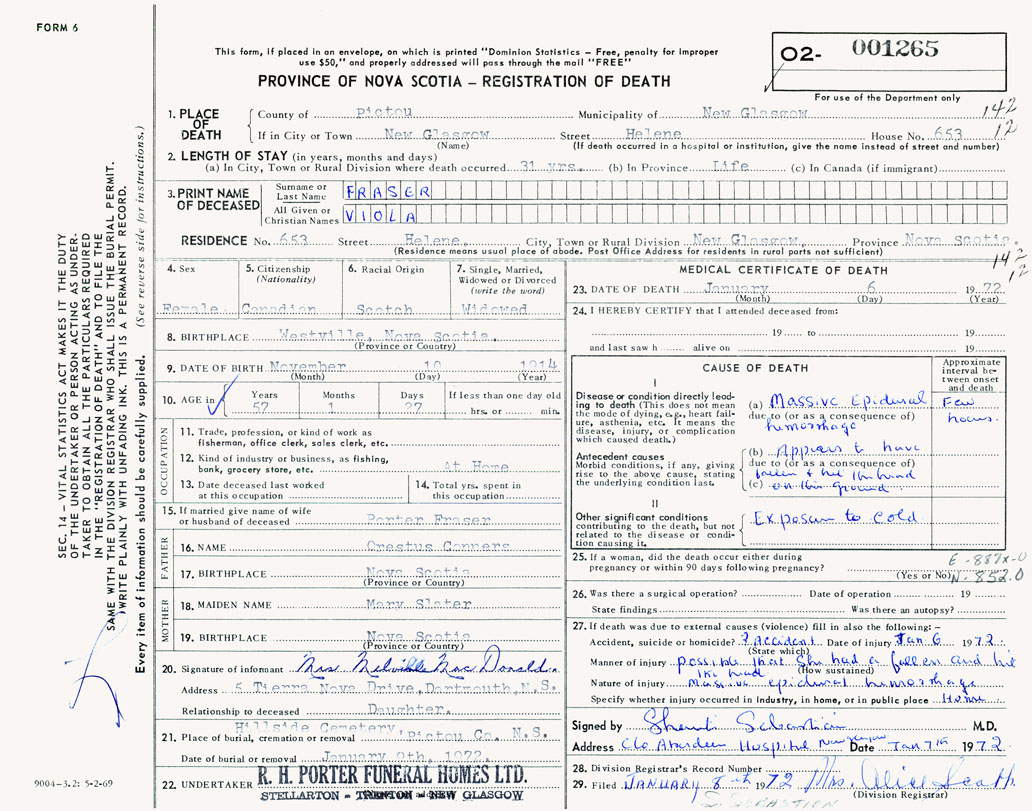 FORM 6
This form, if placed in an envelope, on which is printed "Dominion Statistics – Free, penalty for improper
use $50," and properly addressed will pass through the mail "FREE"
PROVINCE OF NOVA SCOTIA – REGISTRATION OF DEATH
O2- 001265
For use of the Department only
142
12
1. PLACE OF DEATH
County of Pictou Municipality of New Glasgow
If in City or Town New Glasgow Street Helene House No. 653
(Name) (If death occurred in a hospital or institution, give the name instead of street and number)
2. LENGTH OF STAY (in years, months and days)
(a) In City, Town or Rural Division where death occurred 31 yrs. (b) In Province Life (c) In Canada (if immigrant)
3. PRINT NAME OF DECEASED
Surname or Last Name FRASER
All Given or Christian Names VIOLA
RESIDENCE No. 653 Street Helene, City, Town or Rural Division New Glasgow, Province Nova Scotia.
(Residence means usual place of abode. Post Office Address for residents in rural parts not sufficient)
142
12
4. Sex
Female
5. Citizenship
(Nationality)
Canadian
6. Racial Origin
Scotch
7. Single, Married,
Widowed or Divorced
(write the word)
Widowed
8. BIRTHPLACE Westville, Nova Scotia.
(Province or Country)
9. DATE OF BIRTH November 10 1914
(Month) (Day) (Year)
10. AGE in
Years 57
Months 1
Days 27
If less than one day old
hrs. or min.
OCCUPATION
11. Trade, profession, or kind of work as
fisherman, office clerk, sales clerk, etc.
12. Kind of industry or business, as fishing,
bank, grocery store, etc. At Home
13. Date deceased last worked
at this occupation
14. Total yrs. spent in
this occupation
15. If married give name of wife
or husband of deceased Porter Fraser
FATHER
16. NAME Orestus Conners
17. BIRTHPLACE Nova Scotia
(Province or Country)
MOTHER
18. MAIDEN NAME Mary Slater
19. BIRTHPLACE Nova Scotia
(Province or Country)
20. Signature of informant Mrs Melville MacDonald.
Address 5 Tierra Nova Drive, Dartmouth, N.S.
Relationship to deceased Daughter.
21. Place of burial, cremation or removal Hillside Cemetery, Pictou Co. N.S.
Date of burial or removal January 9th, 1972
22. UNDERTAKER R. H. PORTER FUNERAL HOMES LTD.
STELLARTON – TRENTON – NEW GLASGOW
9004–3.2: 5-2-69
MEDICAL CERTIFICATE OF DEATH
23. DATE OF DEATH January 6 1972
(Month) (Day) (Year)
24. I HEREBY CERTIFY that I attended deceased from:
19 to 19
and last saw h alive on 19
CAUSE OF DEATH
Approximate interval between onset and death
I
Disease or condition directly leading to death (This does not
mean the mode of dying, e.g., heart failure, asthenia, etc. It means the
disease, injury, or complication
which caused death.)
(a) Massive Epidural
due to (or as a consequence of)
hemorrhage
Few
hours.
Antecedent causes
Morbid conditions, if any, giving
rise to the above cause, stating
the underlying condition last.
(b) Appears to have
due to (or as a consequence of)
fallen & hit the head
(c) on the ground
II
Other significant conditions
contributing to the death, but not
related to the disease or condition causing it.
Exposure to cold
25. If a woman, did the death occur either during
pregnancy or within 90 days following pregnancy?
(Yes or No)
E-887X-0
N-852.0
26. Was there a surgical operation? Date of operation 19
State findings Was there an autopsy?
27. If death was due to external causes (violence) fill in also the following: –
Accident, suicide or homicide? ? Accident Date of injury Jan 6 1972.
(State which)
Manner of injury possible that she had a fallen and hit
the head (How sustained)
Nature of injury Massive epidural hemorrhage
Specify whether injury occurred in industry, in home, or in public place Home
Signed by Sebastian M.D.
Address C/o Aberdeen Hospital Date Jan 7th 1972.
28. Division Registrar's Record Number
29. Filed JANUARY 8th 1972 Mrs. Alice
(Division Registrar)
S. SEBASTION
SEC. 14 – VITAL STATISTICS ACT MAKES IT THE DUTY
OF THE UNDERTAKER OR PERSON ACTING AS UNDERTAKER TO OBTAIN ALL THE PARTICULARS REQUIRED
IN THE "REGISTRATION OF DEATH" AND TO FILE THE
SAME WITH THE DIVISION REGISTRAR WHO SHALL ISSUE THE BURIAL PERMIT.
WRITE PLAINLY WITH UNFADING INK. THIS IS A PERMANENT RECORD.
Every item of information should be carefully supplied. (See reverse side for instructions.)